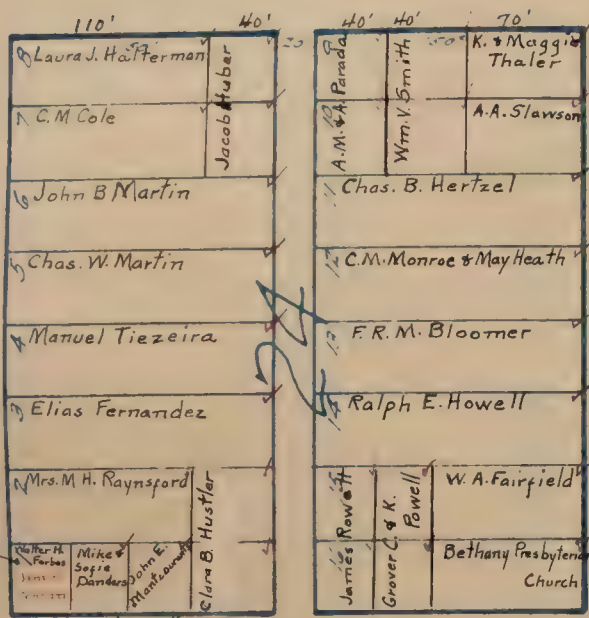 110' 40'
40' 40' 70'
8 Laura J. Halferman
Jacob Huber
7 C. M Cole
6 John B Martin
5 Chas. W. Martin
4 Manuel Tiezeira
3 Elias Fernandez
2 Mrs. M H. Raynsford
Clara B. Hustler
Walter H.
Forbes
Mike
Sofie
Danders
John E.
24
9
A. M. & A. Parada
10
Wm. V. Smith
K. & Maggie
Thaler
A. A. Slawson
11 Chas. B. Hertzel
12 C. M. Monroe & May Heath
13 F. R. M. Bloomer
14 Ralph E. Howell
James Rowett
Grover C. & K.
Powell
W. A. Fairfield
Bethany Presbyterian
Church